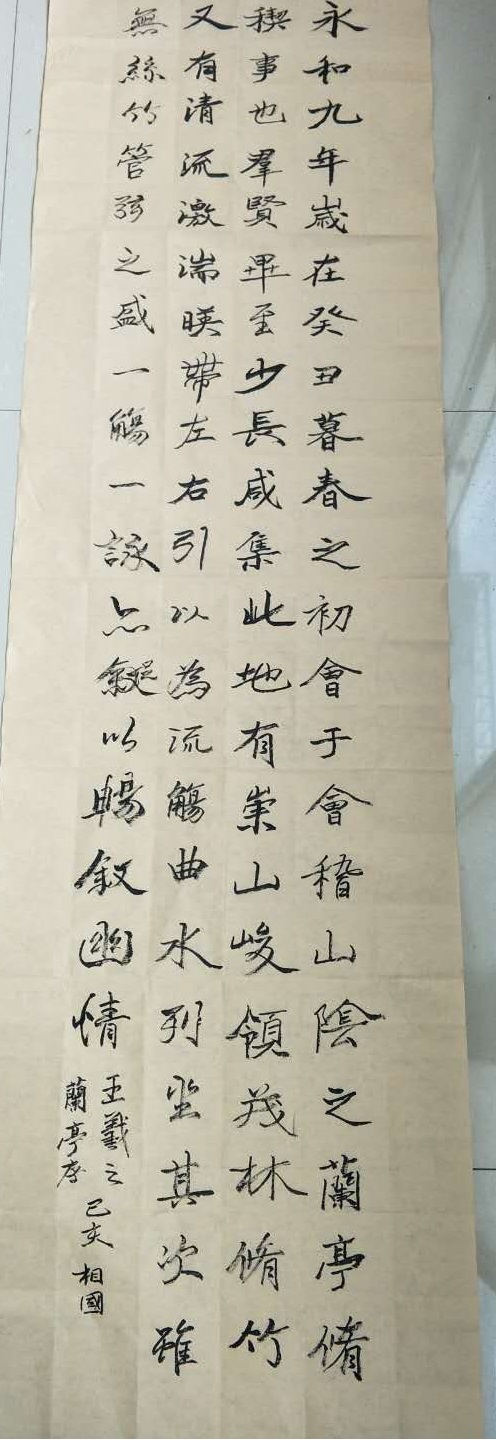 永和九年歲在癸丑暮春之初會于會稽山陰之蘭亭脩
稧事也羣賢畢至少長咸集此地有崇山峻領茂林脩竹
又有清流激湍暎帶左右引以為流觴曲水列坐其次雖
無絲竹管弦之盛一觴一詠亦足以暢敘幽情
王羲之
蘭亭序 己亥 相國